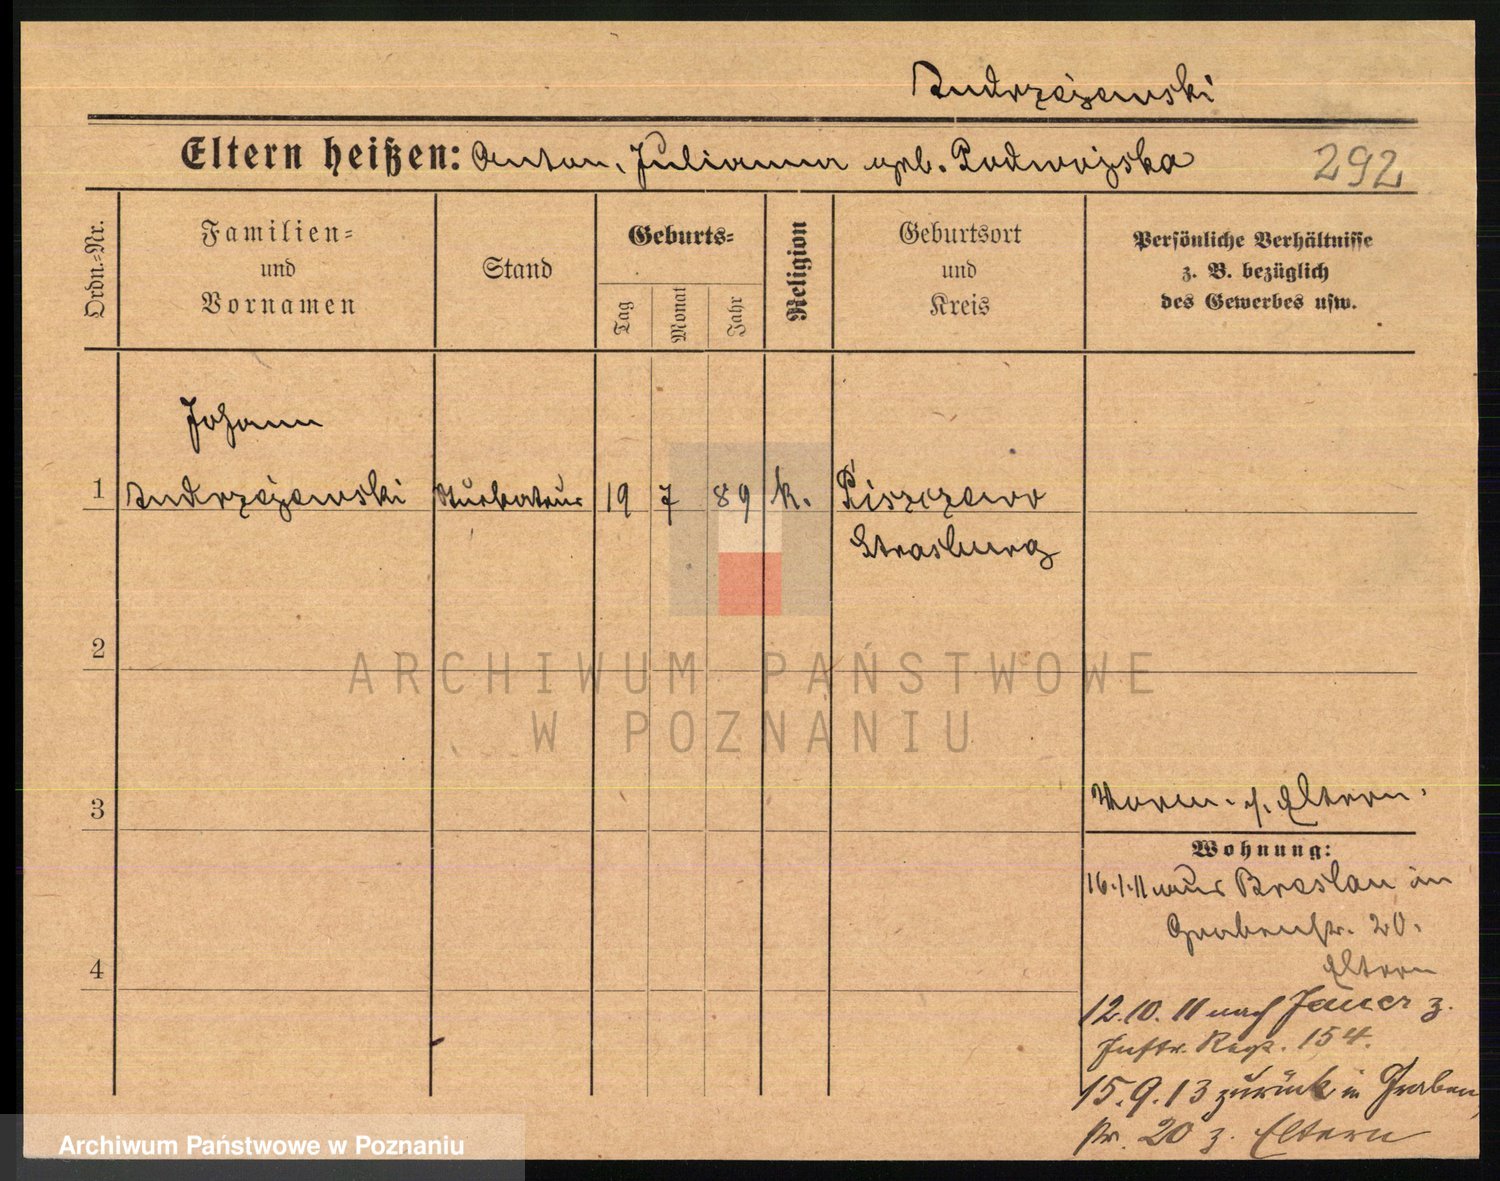 Andrzejewski
Eltern heißen: Anton, Julianna geb. Podwojska
292
Ordn.-Nr.
Familien-
und
Vornamen
Stand
Geburts-
Tag
Monat
Jahr
Religion
Geburtsort
und
Kreis
Persönliche Verhältnisse
z. B. bezüglich
des Gewerbes usw.
Johann
1 Andrzejewski Stukkateur 19 7 89 k. Piszczewo
Strasburg
2
ARCHIWUM PAŃSTWOWE
W POZNANIU
3
Vorm. s. Eltern.
Wohnung:
16.1.11 aus Breslau in
Grabenstr. 20.
Eltern
4
12.10.11 nach Jauer z.
Inftr. Regt. 154.
15.9.13 zurück in Graben
str. 20 z. Eltern
Archiwum Państwowe w Poznaniu